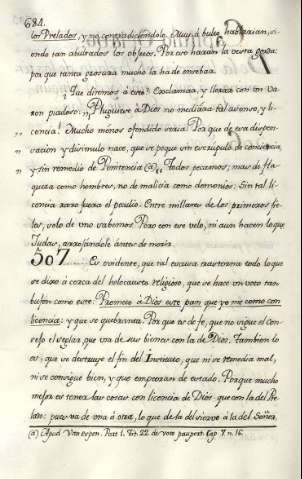 684.
los Prelados, y no contradiciendolo. Muy á bulto hablarian, si-
endo tan abultados los objetos. Por eso harán la vista gorda
por que tanta grosura mucho la ha de
Que diremos á esto? Exclamar, y llorar con un Va-
ron piadoso: "Plugluiese à Dios no mediara tal abuso, y li-
„ cencia! Mucho menos ofendido seria. Por que de esa dispen-
„ vacion y disimulo nace, que se peque sin escrupulo de conciencia,
„ y sin remedio de Penitencia (a)." Todos pecamos; mas de fla-
queza como hombres, no de malicia como demonios. Sin tal li-
cencia raro fuera el perdido. Entre millares de los primeros fie-
les, solo de uno sabemos. Pero con ese velo, ni aun hacen lo que
Judas, arrojandole ántes de morir.
507. Es evidente, que tal excusa trastorna todo lo que
se dixo á cerca del holocausto religioso, que se hace un voto tan
bufon como este: Prometo à Dios este pan que yo me como con
licencia: y que se quebranta. Por que es de fe, que no sigue el con-
sejo el seglar que usa de sus bienes con la de Dios. Tambien lo
es, que se destruye el fin del Instituto, que ni se remedia mal,
ni se consigue bien, y que empeoran de estado. Porque mucho
mejor es tener las cosas con licencia de Dios que con la del Pre-
lado: pues va de una á otra, lo que de la del siervo á la del Señor.
(a) Apud Voto expen. Part 1. Trt. 22 de voto paupert. Cap 7. n. 16.